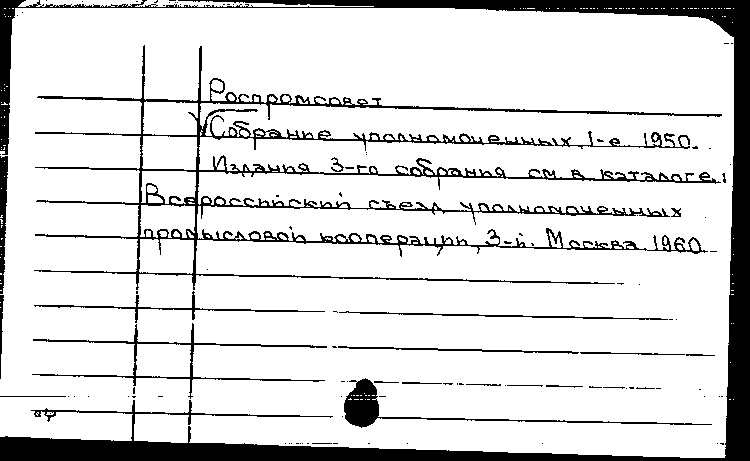 Роспромсовет
Собрание уполномоченных, 1-е 1950.
Издания 3-го собрания см. в каталоге:
Всероссийский съезд уполномоченных
промысловой кооперации, 3-й. Москва. 1960